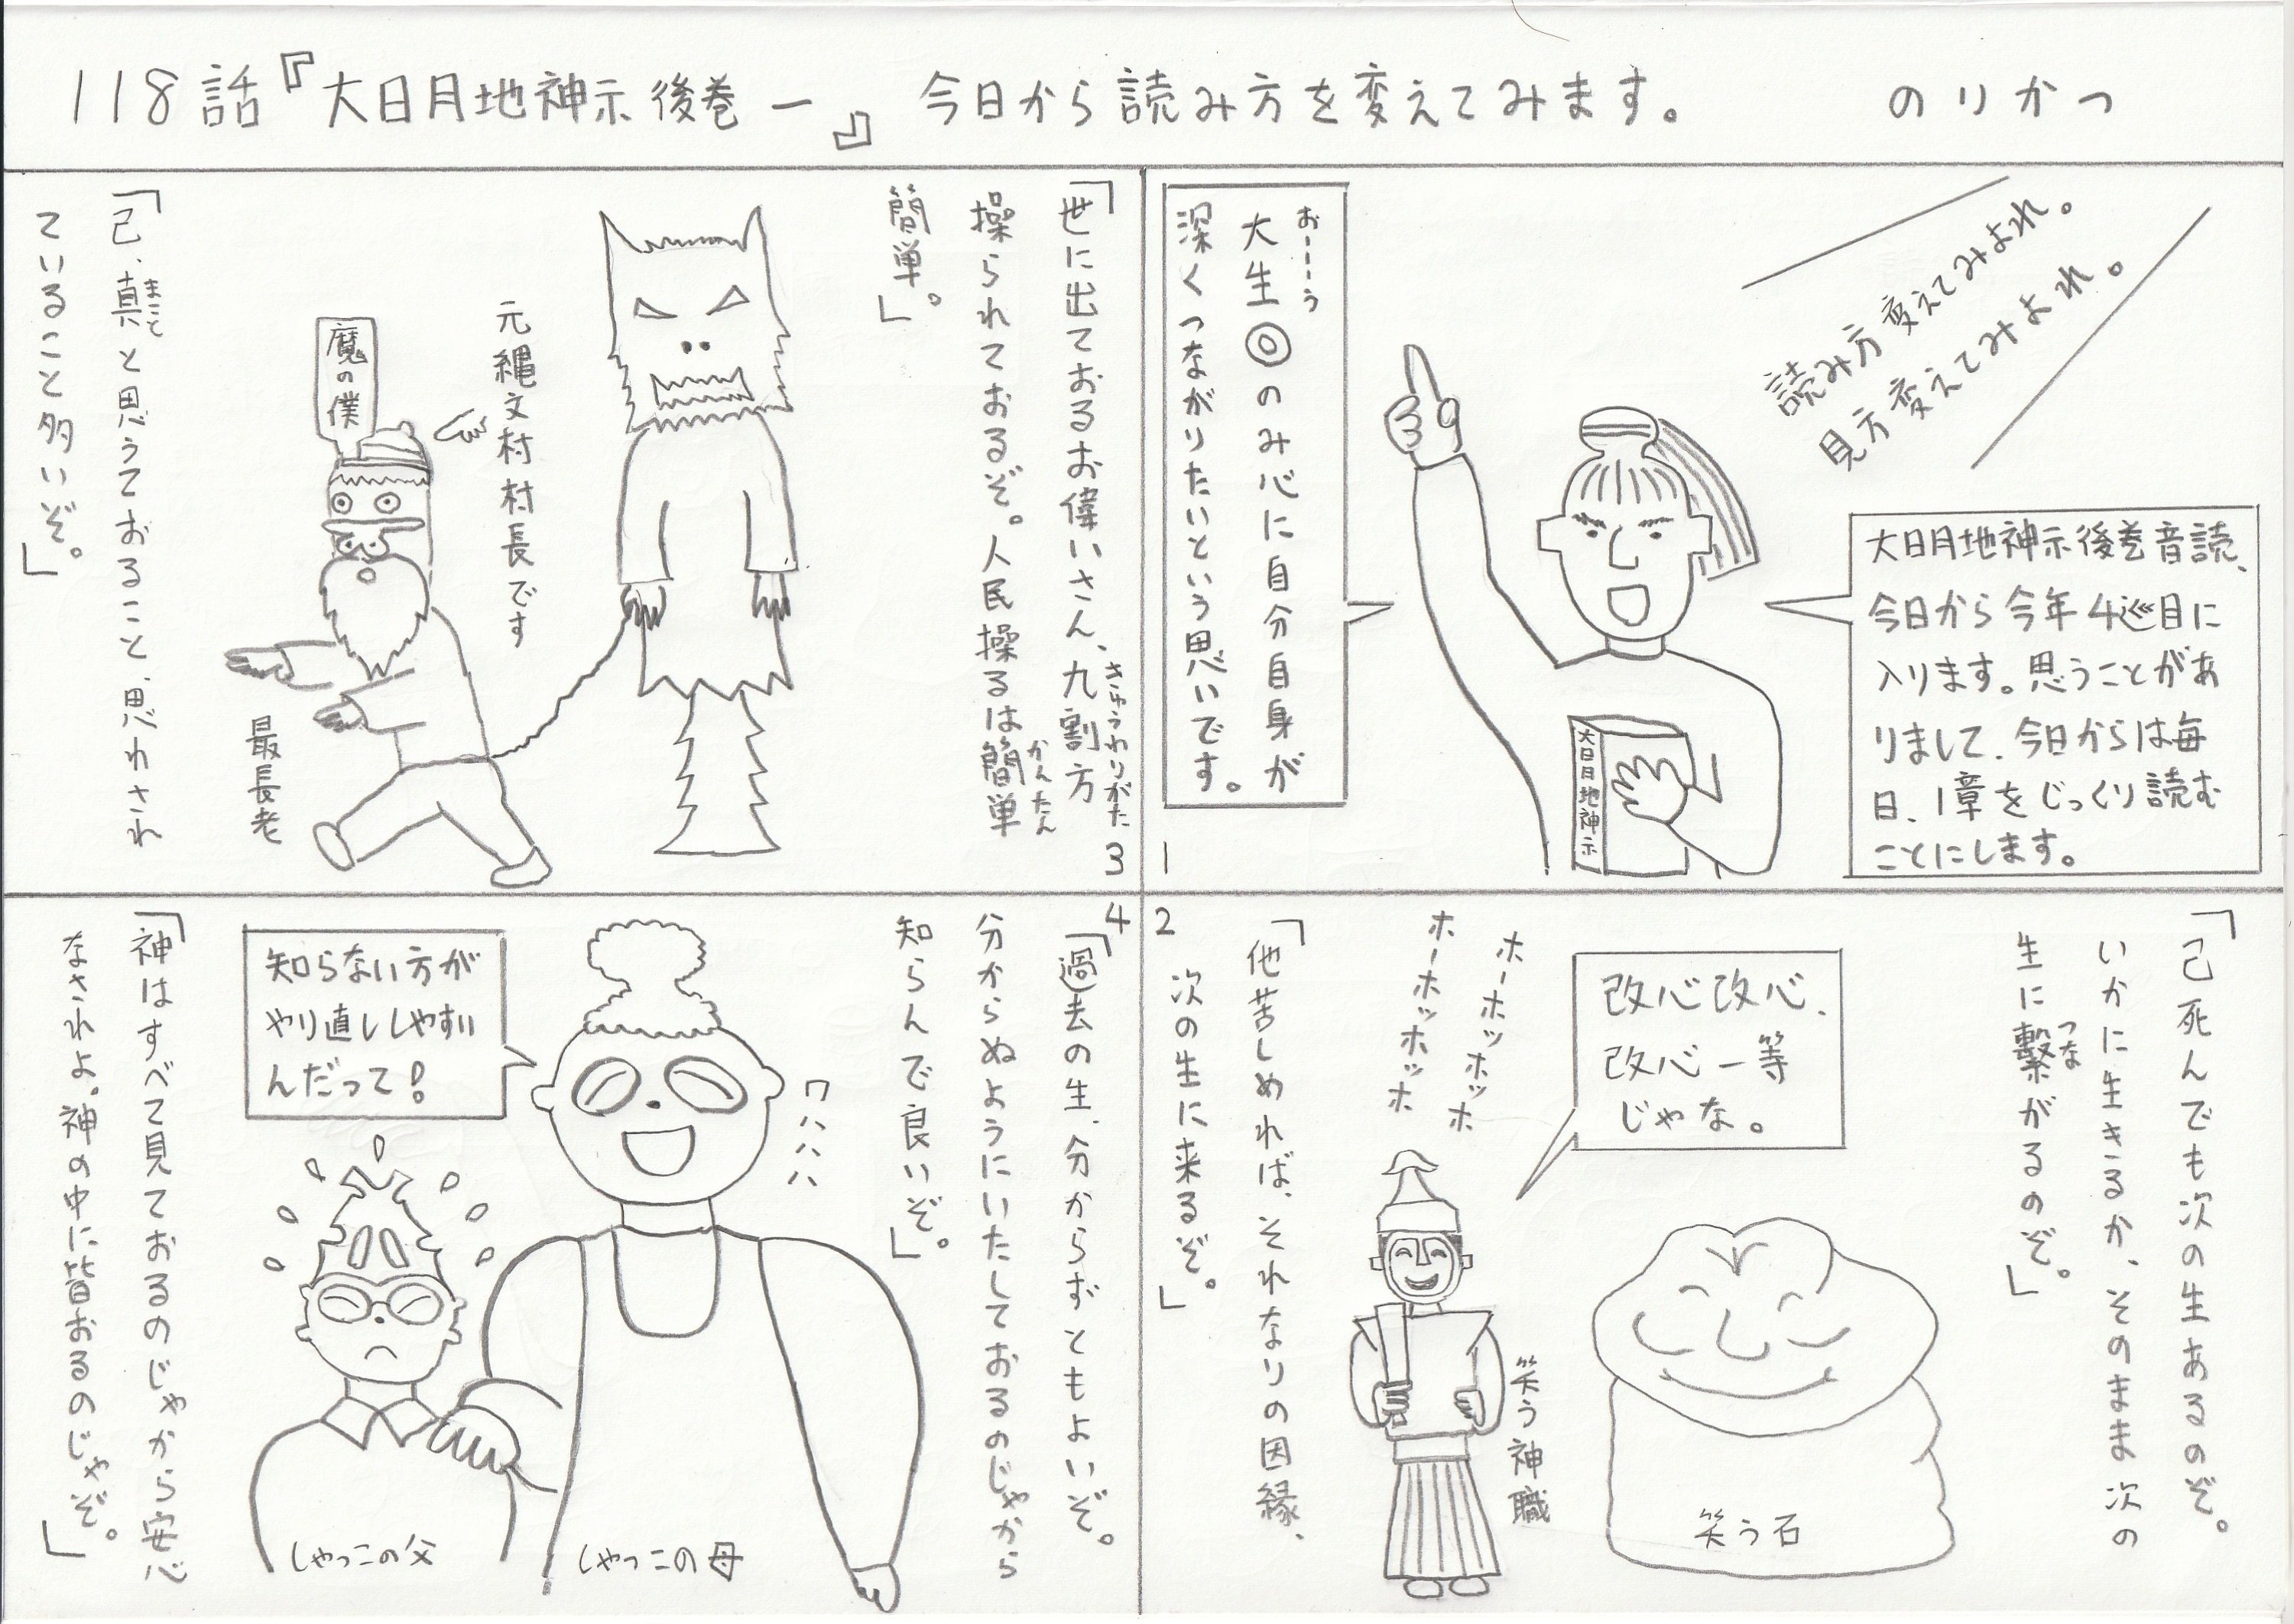 118話『大日月地神示後巻 一』 今日から読み方を変えてみます。 のりかつ
読み方変えてみよれ。
見方変えてみよれ。
大日月地神示後巻音読、
今日から今年4巡目に
入ります。思うことがあ
りまして、今日からは毎
日、1章をじっくり読む
ことにします。
大日月地神示
おーーーう
大生◎のみ心に自分自身が
深くつながりたいという思いです。
1
2
「己死んでも次の生あるのぞ。
いかに生きるか、そのまま次の
生に繋がるのぞ。」
つな
改心改心、
改心一等
じゃな。
ホーホッホッホ
ホーホッホッホ
笑う神職
笑う石
「他苦しめれば、それなりの因縁、
次の生に来るぞ。」
3
「世に出ておるお偉いさん、九割方
きゅうわりがた
操られておるぞ。人民操るは簡単
かんたん
簡単。」
元縄文村村長です
魔の僕
最長老
「己、真と思うておること、思わされ
まこと
ていること多いぞ。」
4
「過去の生、分からずともよいぞ。
分からぬようにいたしておるのじゃから
知らんで良いぞ。」
ワハハハ
知らない方が
やり直ししやすい
んだって！
しゃっこの母
しゃっこの父
「神はすべて見ておるのじゃから安心
なされよ。神の中に皆おるのじゃぞ。」